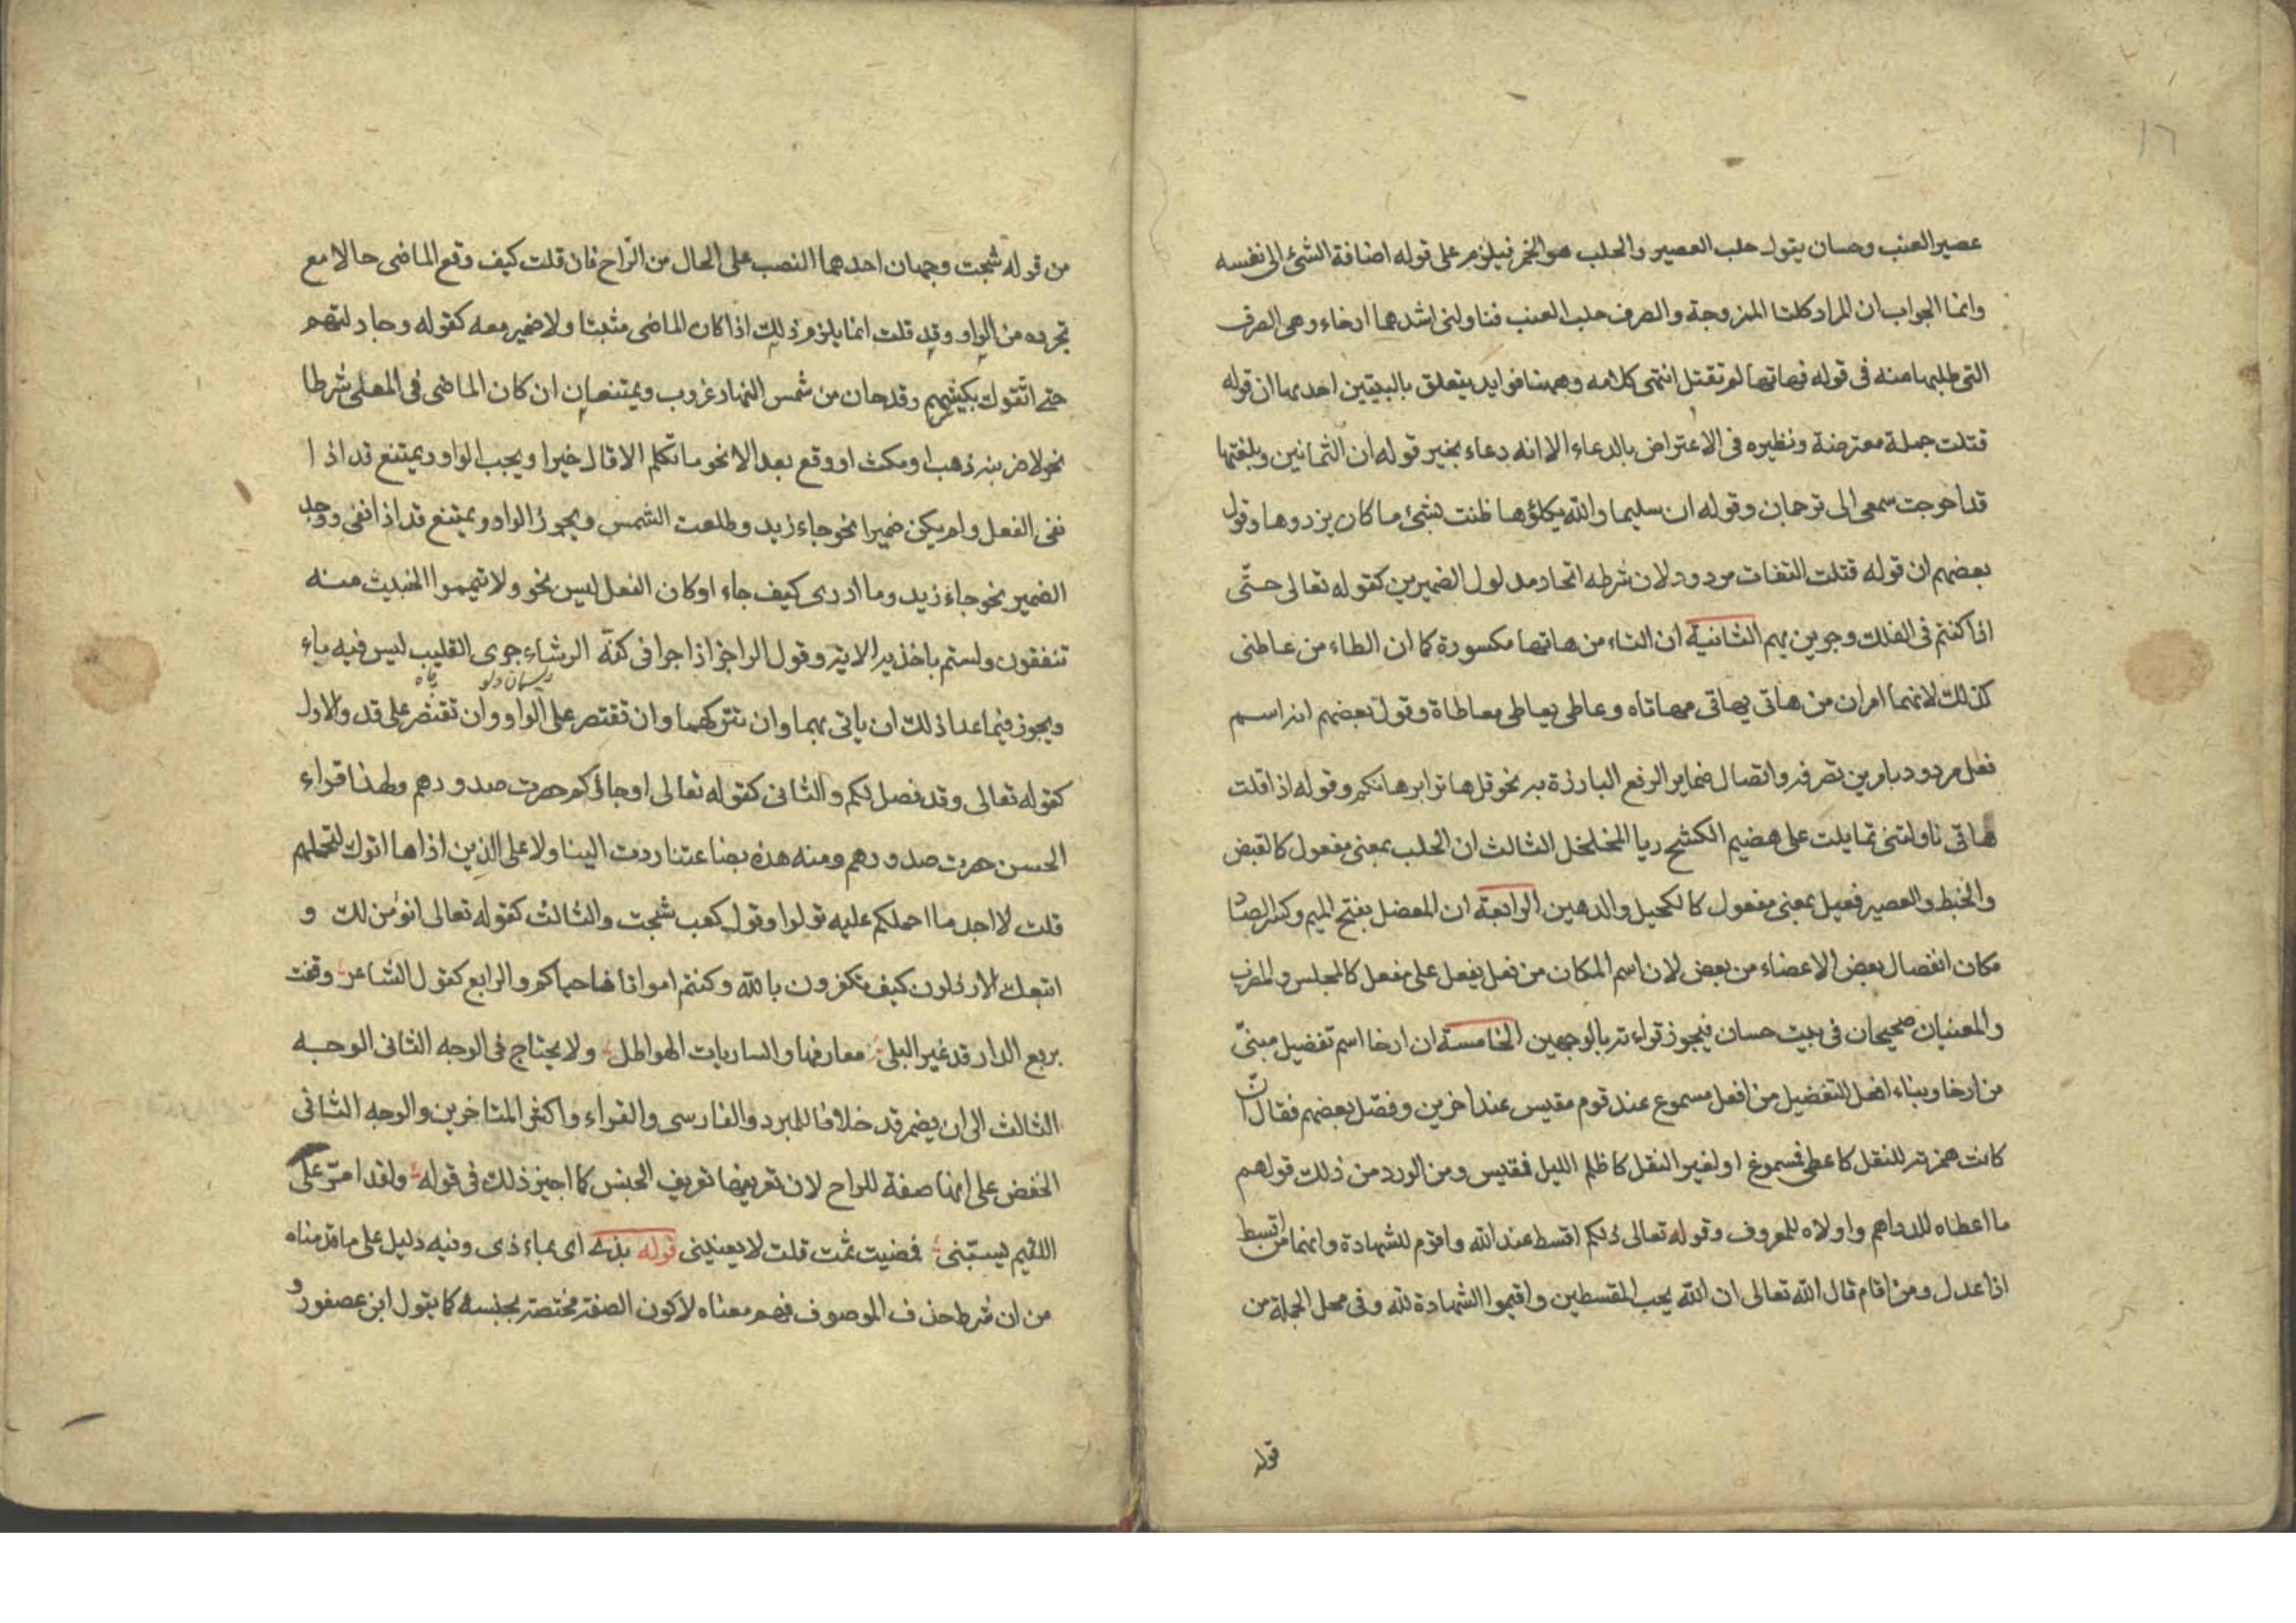 ١٦
عصير العنب وحسان يقول حلب العصير والحلب هو الخمر فيلزم على قوله اضافة الشئ الى نفسه
وانما الجواب ان المراد كلتا الممزوجة والصرف حلب العنب فناولنى اشدهما ارخاء وهى الصرف
التى طلبها منه فى قوله فهاتها لم تقتل انتهى كلامه وههنا فوايد يتعلق بالبيتين احديها ان قوله
قتلت جملة معترضة ونظيره فى الاعتراض بالدعاء الا انه دعاء بخير قوله ان الثمانين وبلغتها
قد احوجت سمعى الى ترجمان وقوله ان سليما والله يكلؤها ظنت بشئ ما كان يزدوها وقول
بعضهم ان قوله قتلت التفات مردود لان شرطه اتحاد مدلول الضميرين كقوله تعالى حتّى
اذا كنتم فى الفلك وجرين بهم الثانية ان التاء من هاتها مكسورة كما ان الطاء من عاطنى
كذلك لانهما امران من هاتى يهاتى مهاتاه وعاطى يعاطى معاطاة وقول بعضهم انه اسم
فعل مردود بامرين تصرفه واتصال ضماير الرفع البارزة به نحو قل هاتوا برهانكم وقوله اذا قلت
هاتى ناولتنى تمايلت على هضيم الكشح ريا المخلخل الثالث ان الحلب بمعنى مفعول كالقبض
والخبط والعصير فعيل بمعنى مفعول كالكحيل والدهين الرابعة ان المفصل بفتح الميم وكسر الصاد
مكان انفصال بعض الاعضاء من بعض لان اسم المكان من فعل يفعل على مفعل كالمجلس والمضرب
والمعنيان صحيحان فى بيت حسان فيجوز قراءته بالوجهين الخامسة ان ارخا اسم تفضيل مبنىّ
من ارخا وبناء افعل التفضيل من افعل مسموع عند قوم مقيس عند اخرين وفصّل بعضهم فقال ان
كانت همزته للنقل كاعطى فمسموع او لغير النقل كاظلم الليل فمقيس ومن الورد من ذلك قولهم
ما اعطاه للدراهم واولاه للمعروف وقوله تعالى ذلكم اقسط عند الله واقوم للشهادة وانهما من اقسط
اذا عدل ومن اقام قال الله تعالى ان الله يحب المقسطين واقيموا الشهادة لله وفى محل الجملة من
قوله
من قوله شجت وجهان احدهما النصب على الحال من الرّاح فان قلت كيف وقع الماضى حالا مع
تجرده من الواو وقد قلت انما يلزم ذلك اذا كان الماضى مثبتا ولا ضمير معه كقوله وجادلتهم
حتى اتّقوك بكبشهم وقد حان من شمس النهار غروب ويمتنعان ان كان الماضى فى المعنى شرطا
نحو لاضربنه ذهب او مكث او وقع بعد الا نحو ما تكلم الا قال خيرا ويجب الواو ويمتنع قد اذا
نفى الفعل ولم يكن ضميرا نحو جاء زيد وما طلعت الشمس ويجوز الواو ويمتنع قد اذا نفى ووجد
الضمير نحو جاء زيد وما ادرى كيف جاء او كان الفعل ليس نحو ولا تيمموا الخبيث منه
تنفقون ولستم باخذيه الاية وقول الراجز اذا جرا فى كفّه الرشاء جوى القليب ليس فيه ماء
ريسمان دلو چاه
ويجوز فيما عدا ذلك ان ياتى بهما وان تتركهما وان تقتصر على الواو وان تقتصر على قد والاول
كقوله تعالى وقد فصل لكم والثانى كقوله تعالى او جاؤكم حصرت صدورهم ولهذا قراء
الحسن حصرت صدورهم ومنه هذه بضاعتنا ردت الينا ولا على الذين اذا ما اتوك لتحملهم
قلت لا اجد ما احملكم عليه تولوا وقول كعب شجت والثالث كقوله تعالى انؤمن لك و
اتبعك الارذلون كيف تكفرون بالله وكنتم امواتا فاحياكم والرابع كقول الشاعر وقفت
بربع الدار قد غير البلى معارفها والساريات الهواطل ولا يحتاج فى الوجه الثانى الوجه
الثالث الى ان يضمر قد خلافا للمبرد والفارسى والفراء واكثر المتاخرين والوجه الثانى
الخفض على انها صفة للراح لان تعريفها تعريف الجنس كما اجيز ذلك فى قوله ولقد امرّ على
اللئيم يسبّنى فمضيت ثمت قلت لا يعنينى قوله بذى اى بماء ذى وفيه دليل على ما قدمناه
من ان شرط حذف الموصوف فهم معناه لا كون الصفة مختصة بجنسه كما يقول ابن عصفور و